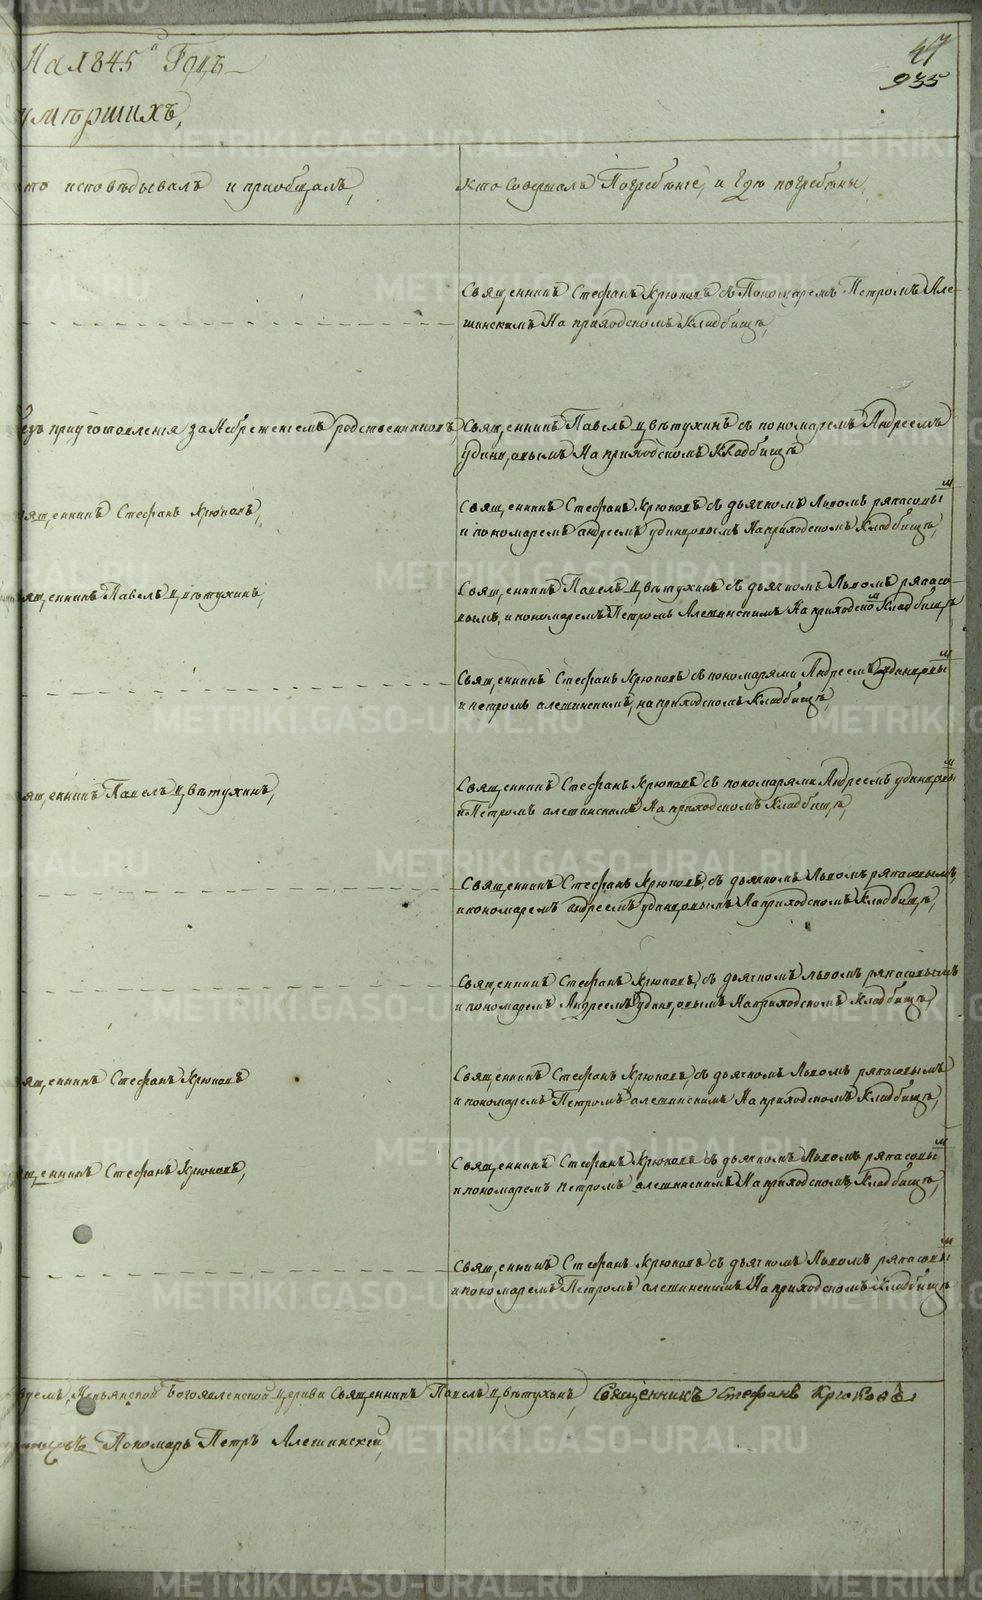 На 1845й Годъ
47
935
умѣршихъ,
то исповѣдывалъ и приобщалъ,
Кто Совершалъ Погребенїе, и Гдѣ погребены,
Священникъ Стефанъ Крюковъ съ Пономаремъ Петромъ Але-
шинскимъ На приходскомъ Кладбищѣ,
езъ приуготовленїя за Небреженїемъ родственниковъ,
Священникъ Павелъ Цвѣтухинъ съ пономаремъ Андреемъ
удинцовымъ На приходскомъ Кладбищѣ
ященникъ Стефанъ Крюковъ,
Священникъ Стефанъ Крюковъ съ дьячкомъ Львомъ ряпасовым
и пономаремъ андреемъ удинцовымъ На приходскомъ Кладбищѣ,
ященникъ Павелъ Цвѣтухинъ,
Священникъ Павелъ Цвѣтухинъ съ дьячкомъ Львомъ ряпасо-
вымъ, и пономаремъ Петромъ Алешинскимъ На приходском Кладбищѣ
Священникъ Стефанъ Крюковъ съ пономарями Андреемъ удинцовым
и петромъ алешинскимъ, на приходскомъ Кладбищѣ,
ященникъ Павелъ Цвѣтухинъ,
Священникъ Стефанъ Крюковъ съ пономарями Андреемъ удинцовым
и Петромъ алешинскимъ На приходскомъ Кладбищѣ,
Священникъ Стефанъ Крюковъ, съ дьячкомъ Львомъ ряпасовымъ,
и пономаремъ андреемъ удинцовымъ На приходскомъ Кладбищѣ,
Священникъ Стефанъ Крюковъ, съ дьячкомъ львомъ ряпасовымъ
и пономаремъ Андреемъ удинцовымъ На приходскомъ Кладбищѣ,
ященникъ Стефанъ Крюковъ
Священникъ Стефанъ Крюковъ съ дьячкомъ Львомъ ряпасовымъ
и пономаремъ Петромъ алешинскимъ На приходскомъ Кладбищѣ,
ященникъ Стефанъ Крюковъ,
Священникъ Стефанъ Крюковъ съ дьячкомъ Львомъ ряпасовым
и пономаремъ петромъ алешинскимъ На приходскомъ Кладбищѣ,
Священникъ Стефанъ Крюковъ съ дьячкомъ Львомъ ряпасовым
и пономаремъ Петромъ алешинскимъ На приходскомъ Кладбищѣ
Богоявленской Церкви Священникъ Павелъ Цвѣтухинъ, Священникъ Стефанъ Крюковъ.
Пономарь Петръ Алешинскїй,
METRIKI.GASO-URAL.RU